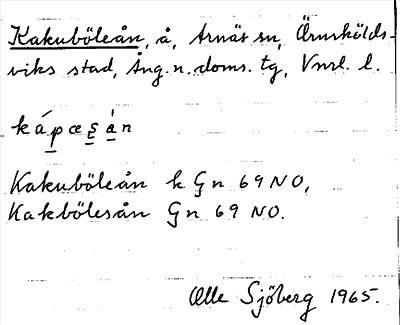 Kakuböleån, å, Arnäs sn, Örnskölds-
viks stad, Ång. n. doms. tg, Vnrl. l.
kápæsån
Kakuböleån k Gn 69 NO,
Kakbölesån Gn 69 NO.
Olle Sjöberg 1965.